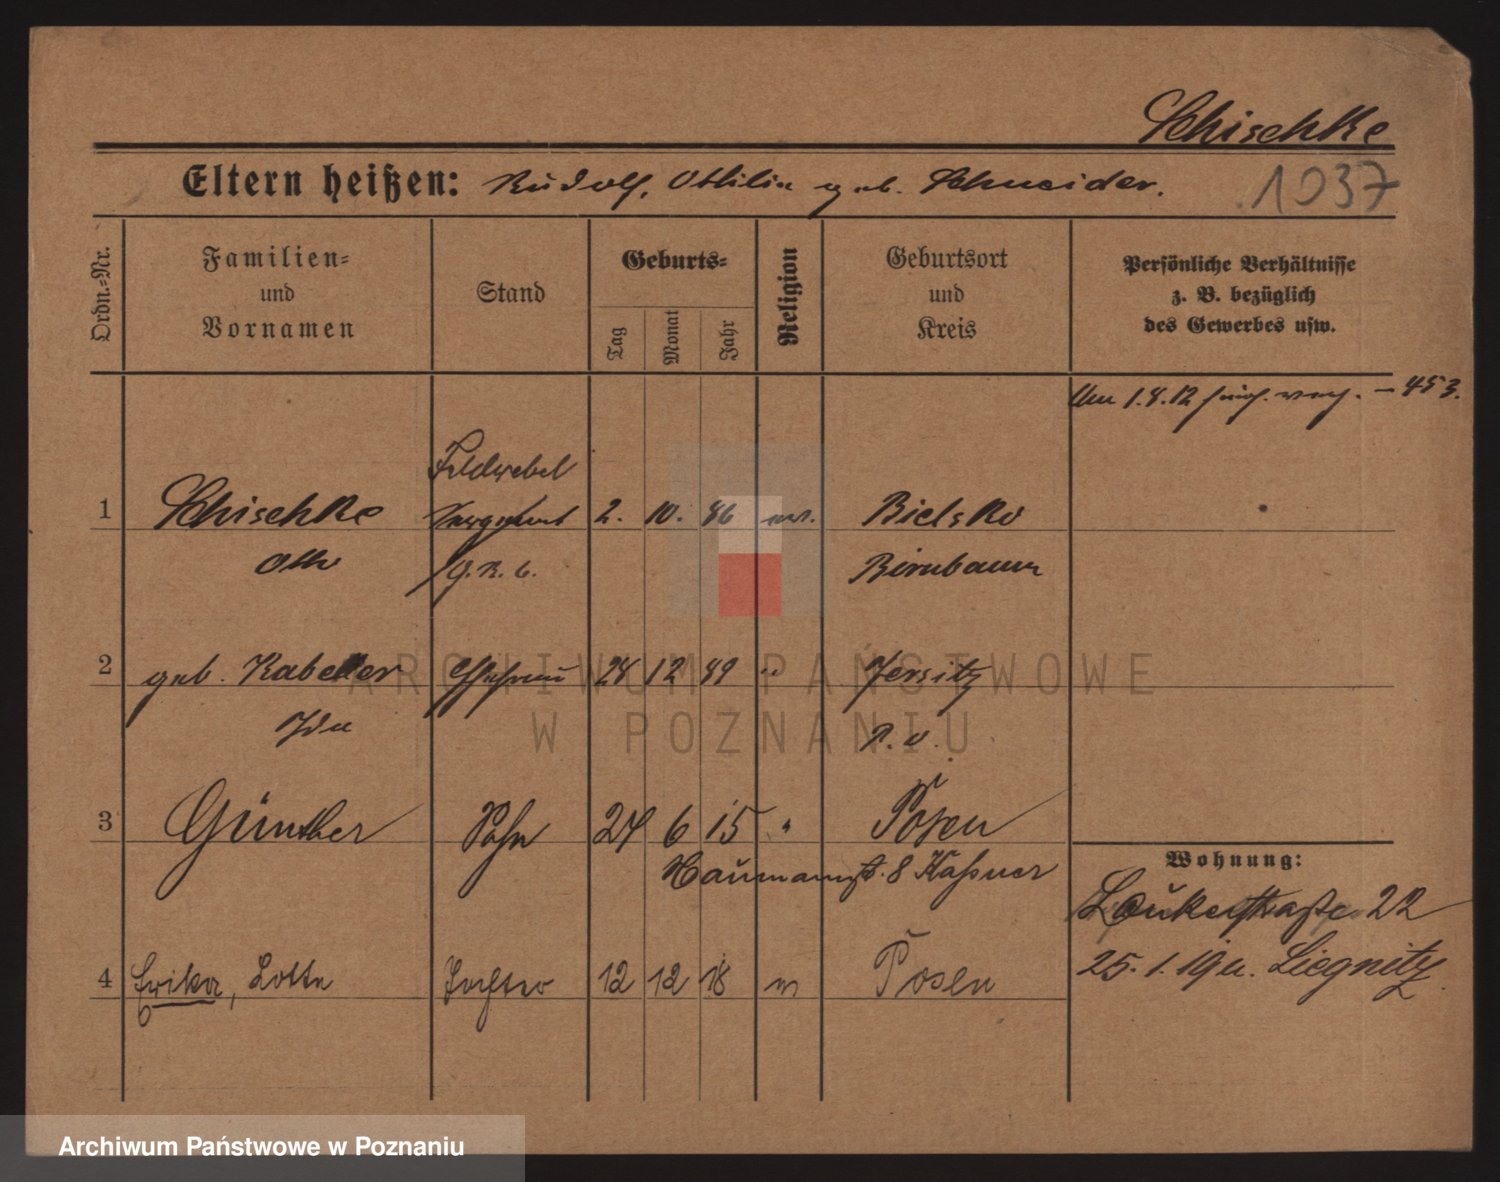 Schischke
Eltern heißen: Rudolf, Ottilie geb. Schneider.
1037
Ordn.-Nr.
Familien- und Vornamen
Stand
Geburts-
Tag
Monat
Jahr
Religion
Geburtsort und Kreis
Persönliche Verhältnisse
z. B. bezüglich
des Gewerbes usw.
Um 1.8.12 453.
Feldwebel
1 Schischke Sergeant 2. 10. 86 ev. Bielsko
Otto G.R. 6. Birnbaum
2 geb. Kabeller Ehefrau 28 12 89 " Jersitz
Ida P. O.
3 Günther Sohn 24 6 15 " Posen
Naumannst. 8 Kaßner
Wohnung:
22
4 Erika, Lotte Tochter 12 12 18 Posen
25. 1. 19 n. Liegnitz
ARCHIWUM PAŃSTWOWE
W POZNANIU
Archiwum Państwowe w Poznaniu